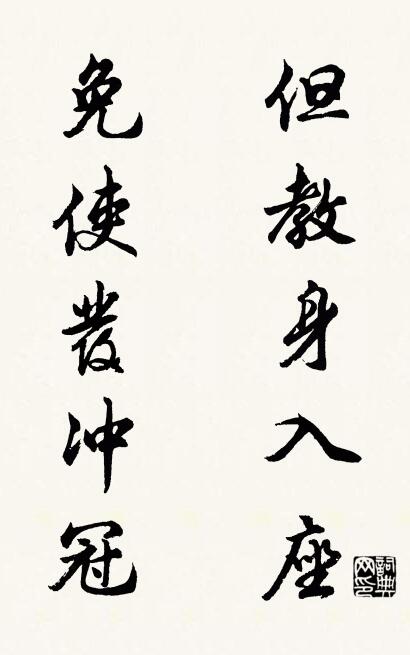 但教身入座
免使發冲冠
詞典网印